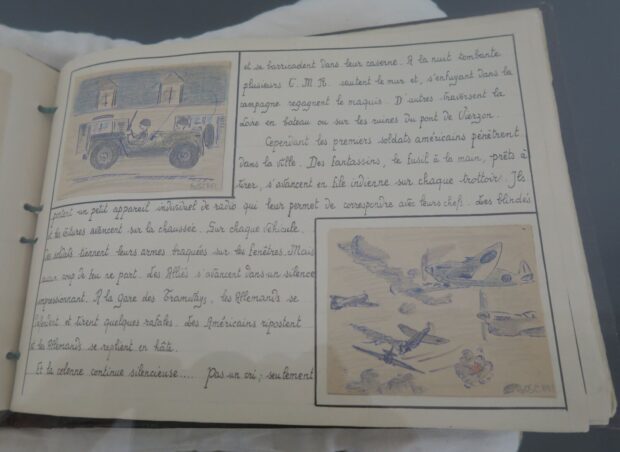 et se barricadent dans leur caserne. A la nuit tombante
plusieurs G.M.R. sautent le mur et, s'enfuyant dans la
campagne regagnent le maquis. D'autres traversent la
Loire en bateau ou sur les ruines du pont de Vierzon.
Cependant les premiers soldats américains pénètrent
dans la ville. Des fantassins, le fusil à la main, prêts à
tirer, s'avancent en file indienne sur chaque trottoir. Ils
portent un petit appareil individuel de radio qui leur permet de correspondre avec leurs chefs. Les blindés
et les voitures avancent sur la chaussée. Sur chaque véhicule
des soldats tiennent leurs armes braquées sur les fenêtres. Mais
aucun coup de feu ne part. Les Alliés s'avancent dans un silence
impressionnant. A la gare des les Allemands se
et tirent quelques rafales. Les Américains ripostent
et les Allemands se replient en hâte.
Et la colonne continue silencieuse.... Pas un cri, seulement